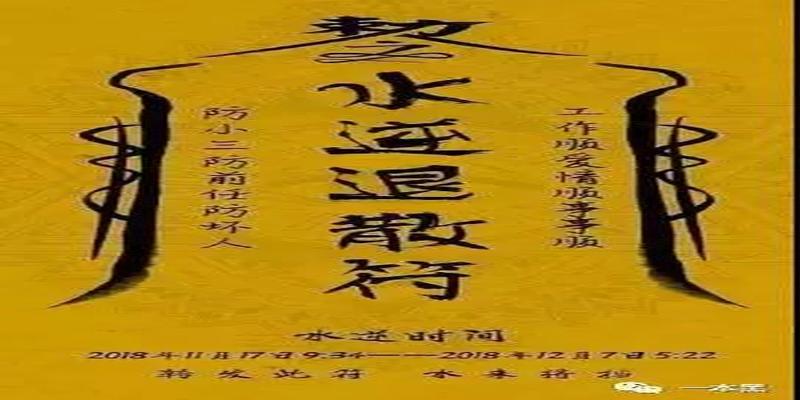 水逆退散符
工作顺爱情顺事事顺
防小三防前任防坏人
水逆时间
2018年11月17日9:34——2018年12月7日5:22
转发此符 水来将挡
一本黑